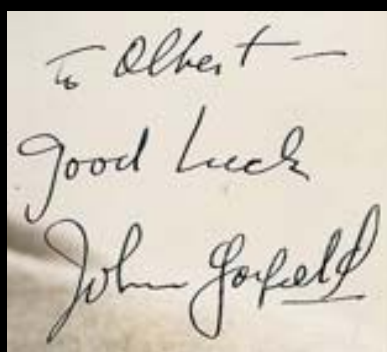 To Albert —
Good Luck
John Garfield